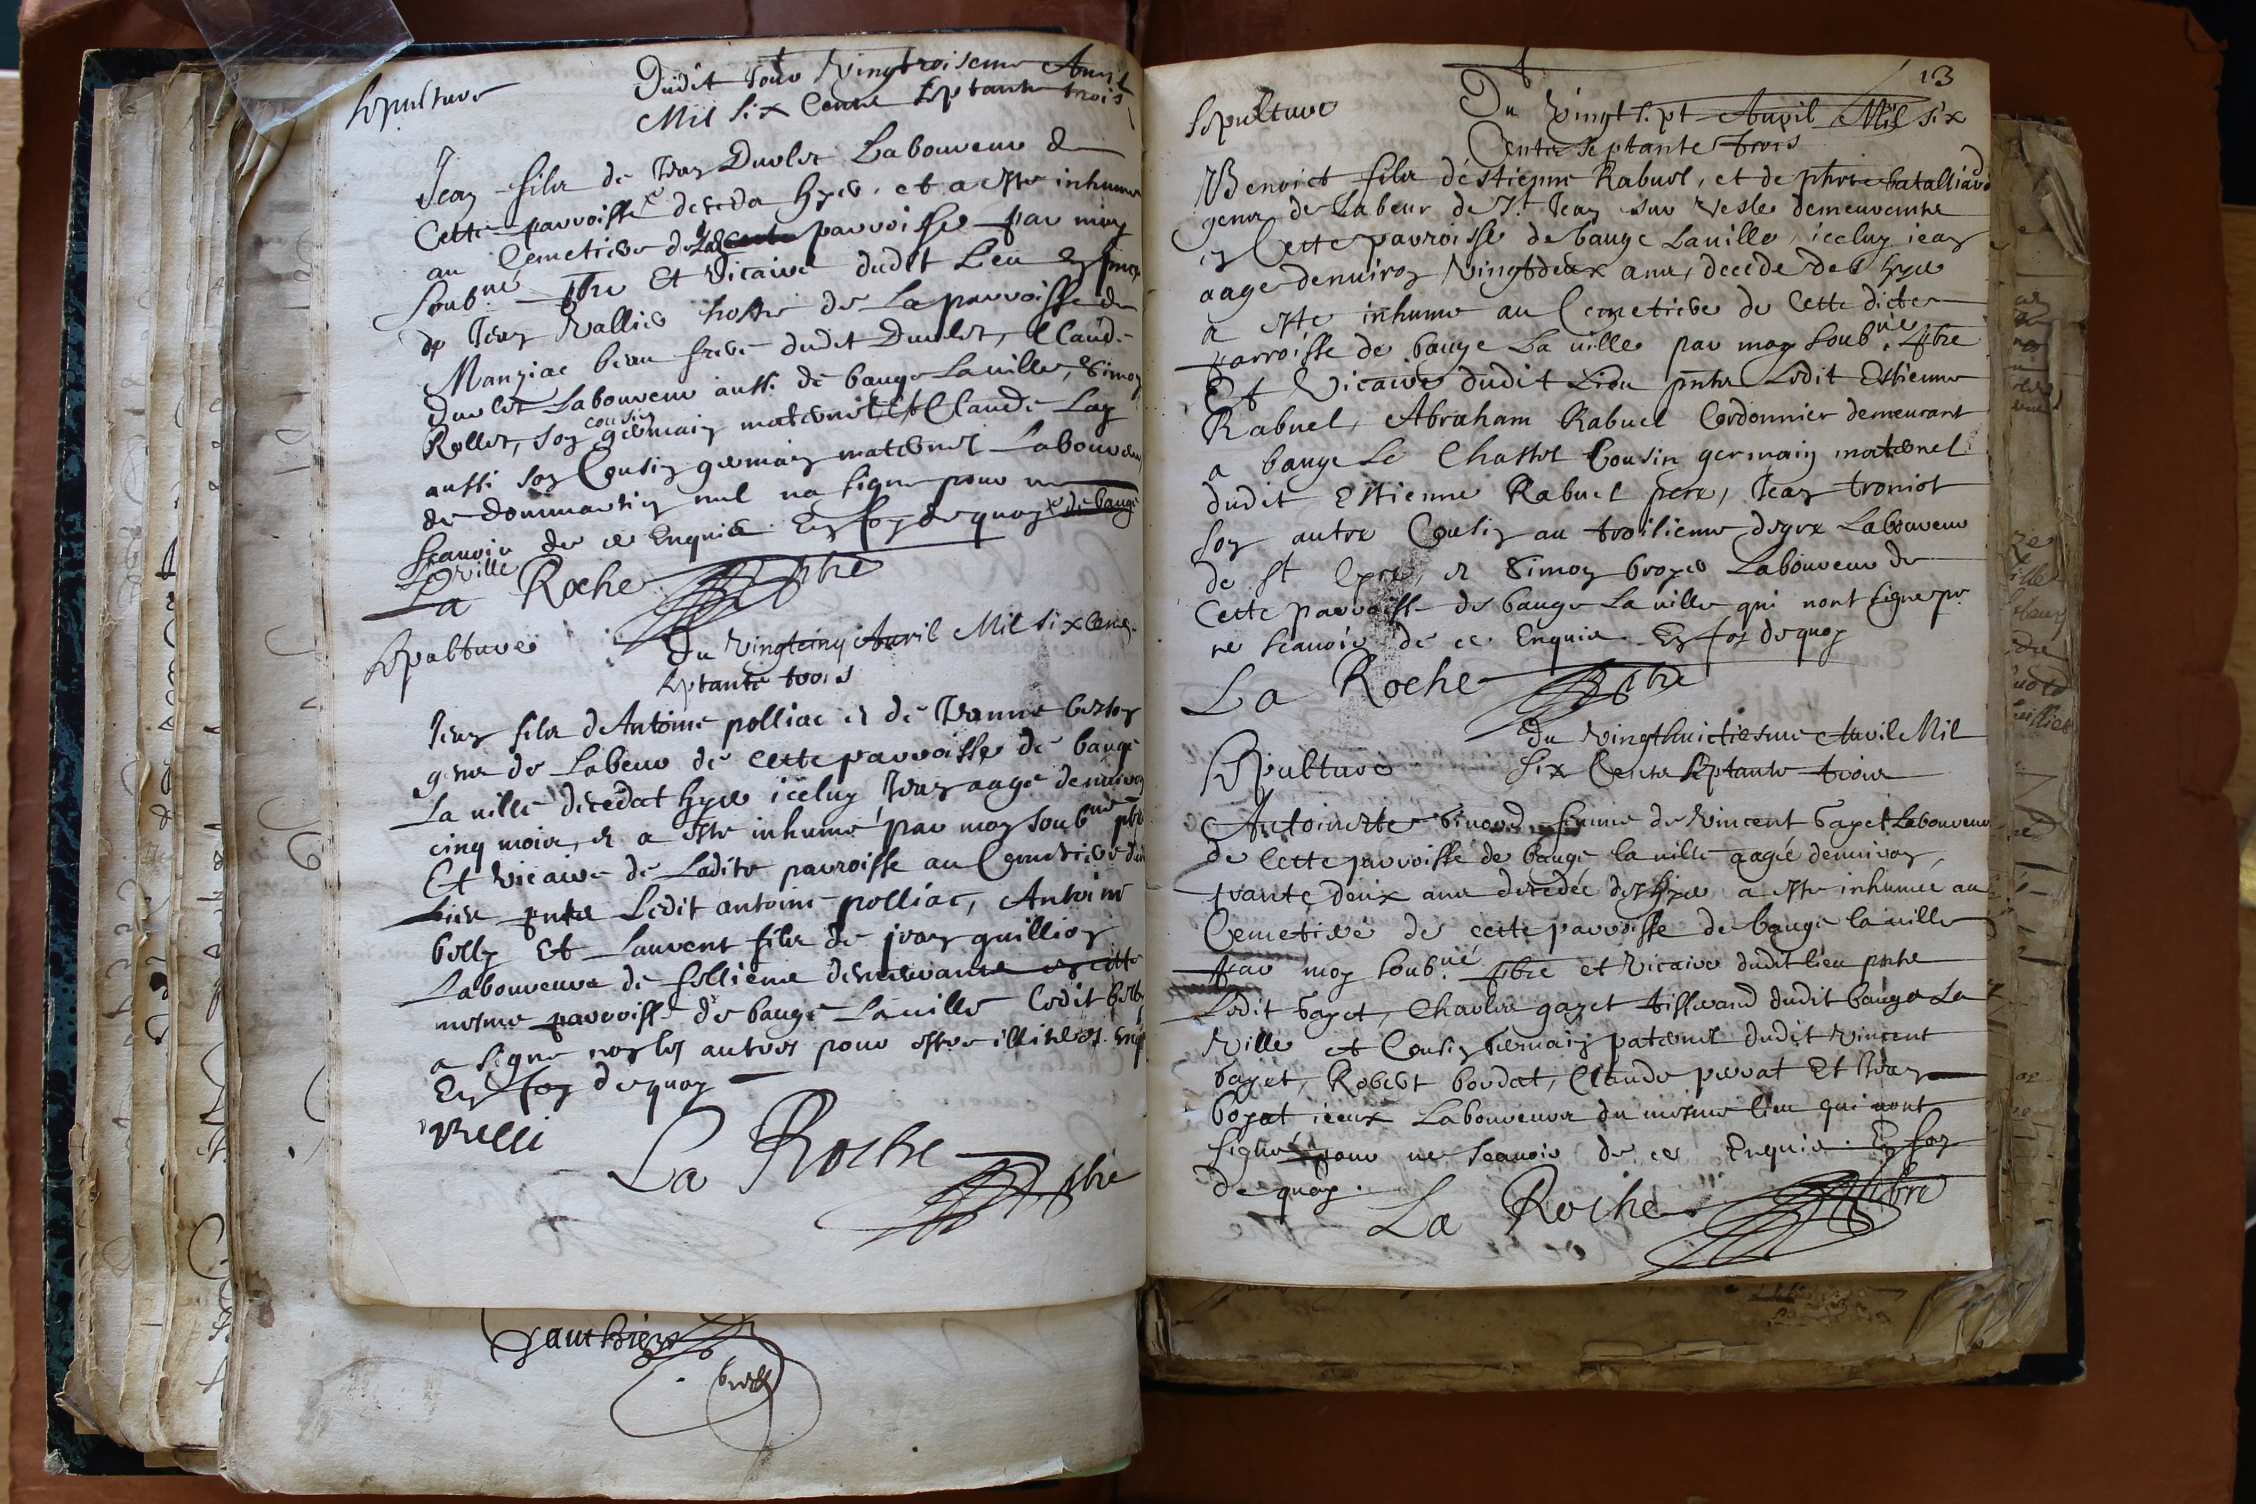 Sepulture
Dudit Jour Vingtroisieme Auril
Mil six Cents Septante trois
Jean filz de Jean Duvlet Laboureur de
Cette parroisse deceda hyer, et a este inhumé
au Cemetiere de parroisse par moy
Soubné pbre Et Vicaire dudit Lieu
de Jean Vallier hoste de La parroisse de
Manziac beau frere dudit Duvlet, Claude
Duvlet Laboureur aussi de bauge La ville, Simon
Rollet, son cousin germain maternel et Claude Lay
aussi son Cousin germain maternel Laboureur
de dommartin nul na signe pour ne
scauoir de ce Enquis. En foy de quoy de bauge
La ville
La Roche pbre
Sepulture
Du Vingtcinq Auril Mil six cens
septante trois
Jean filz de Antoine polliac et de Jeanne
gens de Labeur de cette parroisse de bauge
La ville decedat hyer iceluy Jean aagé denuiron
cinq mois, et a este inhumé par moy soubné pbre
Et vicaire de Ladite parroisse au Cemetiere dud
Lieu pnts Ledit antoine polliac, Antoine
belly Et Laurent filz de jean guillion
Laboureurs de demeurants en cette
mesme parroisse de bauge La ville Ledit belly
a signe non les autres pour estre illiteres
En foy de quoy
Belli
La Roche pbre
Gauthier
13
Sepulture
Du Vingt sept Auril Mil six
Cents Septante trois
Benoict filz destienne Rabuel, et de batalliard
gens de Labeur de St Jean sur Vesle demeurants
en Cette parroisse de bauge La ville, iceluy jean
aage denuiron Vingtdeux ans, decede des hyer
a este inhumé au Cemetiere de Cette dicte
parroisse de bauge La ville par moy Soubné pbre
Et Vicaire dudit Lieu pnts Ledit Estienne
Rabuel, Abraham Rabuel Cordonnier demeurant
a bauge Le Chastel Cousin germain maternel
dudit Estienne Rabuel pere, Jean troniot
son autre Cousin au troisieme degre Laboureur
de St Cyre, et Simon broyer Laboureur de
Cette parroisse de bauge La ville qui nont signe pr
ne scauoir de ce Enquis En foy de quoy
La Roche pbre
Sepulture
du Vingthuictiesme Auril Mil
Six Cents Septante trois
Antoinette femme de Vincent gayet Laboureur
de Cette parroisse de bauge la ville aagée denuiron
deux ans decedée des hyer a este inhumee au
Cemetiere de cette parroisse de bauge la ville
par moy soubné pbre et Vicaire dudit lieu pnts
Ledit gayet, Charles gayet tisserand dudit bauge La
Ville et Cousin germain paternel dudit Vincent
gayet, Robert bordat, Claude perrat Et Jean
boyat iceux Laboureurs du mesme lieu qui nont
signé pour ne scauoir de ce Enquis. En foy
de quoy.
La Roche pbre